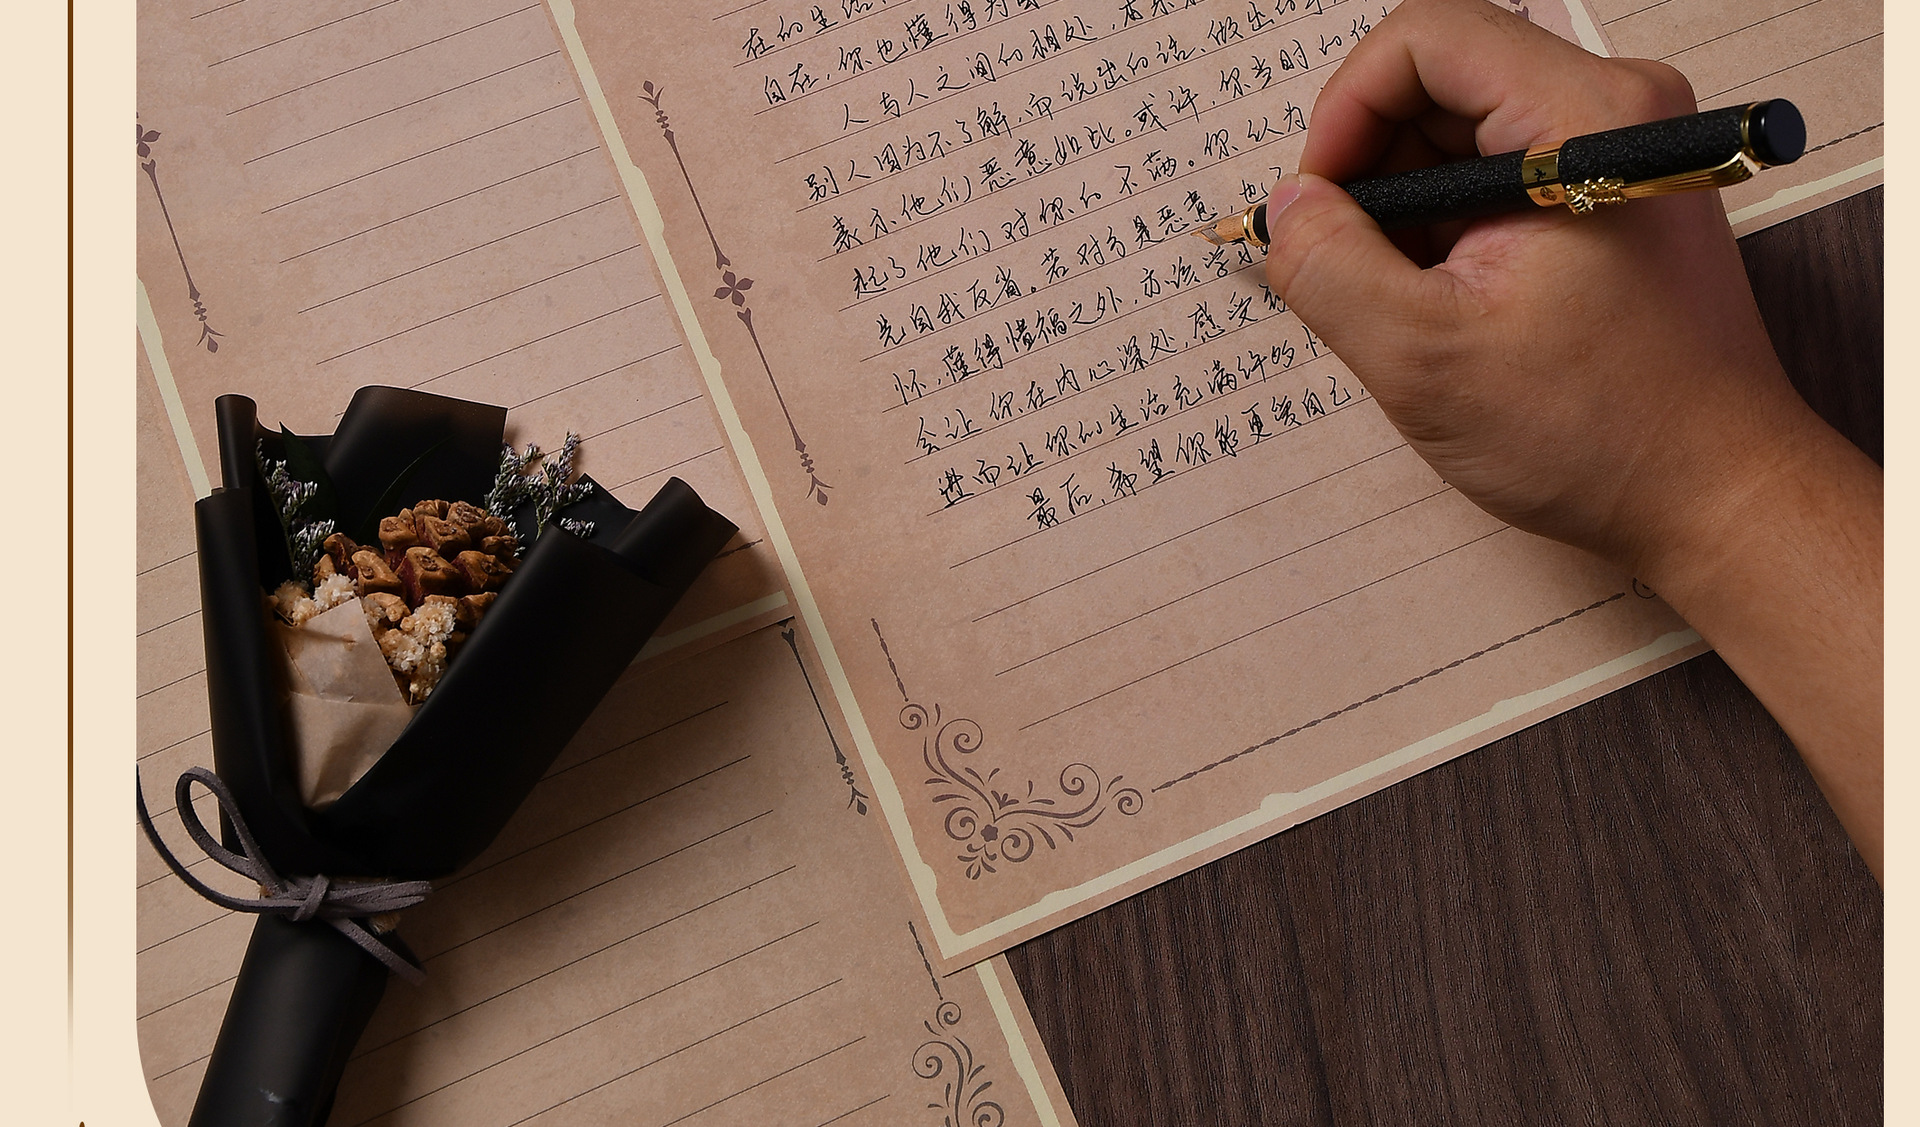 在的生活
自在，你也懂得为
人与人之间的相处，
别人因为不了解，而说出的话、做出的
表示他们恶意如此。或许，你当时的
起了他们对你的不满。你认为
先自我反省。若对方是恶意，也
怀，懂得惜福之外，亦该学习
会让你在内心深处，感受
进而让你的生活充满许多
最后，希望你能更爱自己，